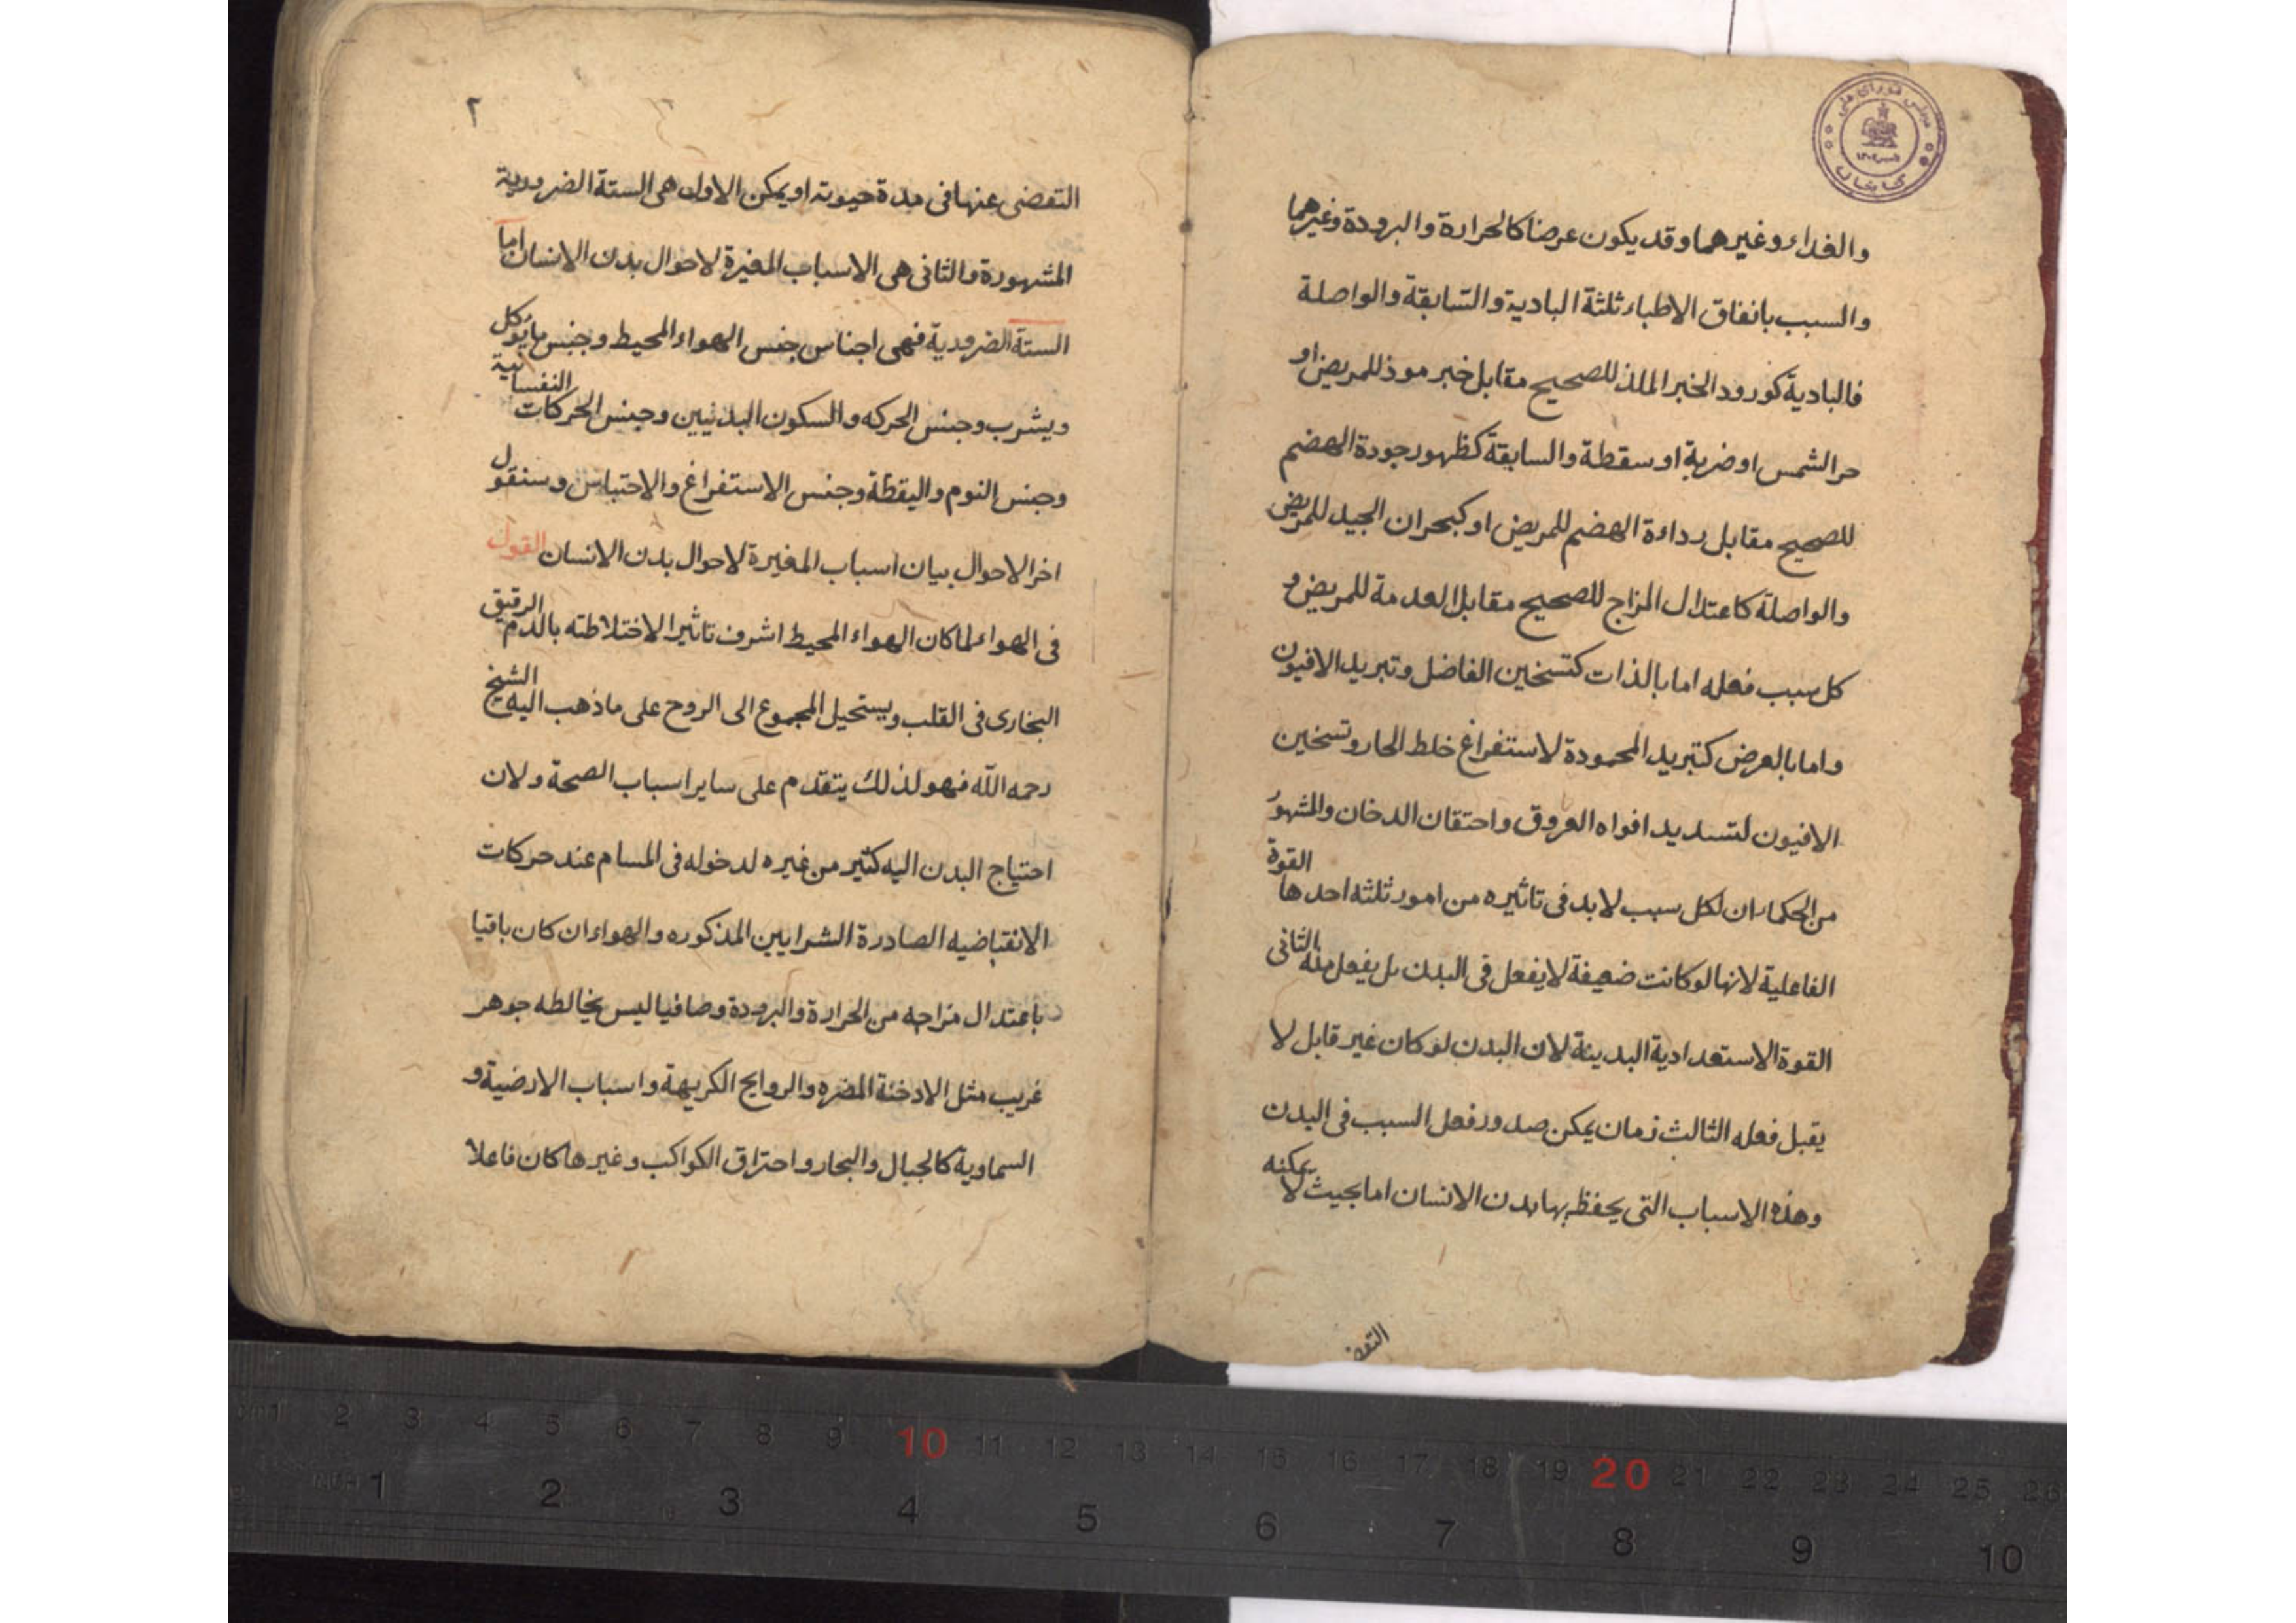 والغداء وغيرهما وقد يكون عرضا كالحرارة والبرودة وغيرهما
والسبب باتفاق الاطباء ثلثة البادية والسابقة والواصلة
فالبادية كورود الخبر الملذ للصحيح مقابل خبر موذ للمريض او
حر الشمس او ضربة او سقطة والسابقة كظهور جودة الهضم
للصحيح مقابل رداءة الهضم للمريض او كبحران الجيد للمريض
والواصلة كاعتدال المزاج للصحيح مقابل العدمة للمريض و
كل سبب فعله اما بالذات كتسخين الفاضل وتبريد الافيون
واما بالعرض كتبريد المحمودة لاستفراغ خلط الحار وتسخين
الافيون لتسديد افواه العروق واحتقان الدخان والمشهور
من الحكماء ان لكل سبب لابد فى تاثيره من امور ثلثه احدها القوة
الفاعلية لانها لو كانت ضعيفة لا يفعل فى البدن بل يفعل منه الثانى
القوة الاستعدادية البدينة لان البدن لو كان غير قابل لا
يقبل فعله الثالث زمان يمكن صدور فعل السبب فى البدن
وهذه الاسباب التى يحفظ بها بدن الانسان اما بحيث لا يمكنه
التفض
٢
التفضى عنها فى مدة حيوته او يمكن الاول هى الستة الضرورية
المشهورة والثانى هى الاسباب المغيرة لاحوال بدن الانسان اما
الستة الضرورية فهى اجناس جنس الهواء المحيط وجنس ما يؤكل
ويشرب وجنس الحركه والسكون البدنيين وجنس الحركات النفسانية
وجنس النوم واليقظة وجنس الاستفراغ والاحتباس وسنقول
اخر الاحوال بيان اسباب المغيرة لاحوال بدن الانسان القول
فى الهواء لما كان الهواء المحيط اشرف تاثيرا لاختلاطته بالدم الرقيق
البخارى فى القلب ويستحيل المجموع الى الروح على ما ذهب اليه الشيخ
رحمه الله فهو لذلك يتقدم على ساير اسباب الصحة ولان
احتياج البدن اليه كثير من غيره لدخوله فى المسام عند حركات
الانقباضيه الصادرة الشرايين المذكوره والهواء ان كان باقيا
باعتدال مزاجه من الحرارة والبرودة وصافيا ليس يخالطه جوهر
غريب مثل الادخنة المضره والروايح الكريهة واسباب الارضية و
السماوية كالجبال والبحار واحتراق الكواكب وغيرها كان فاعلا